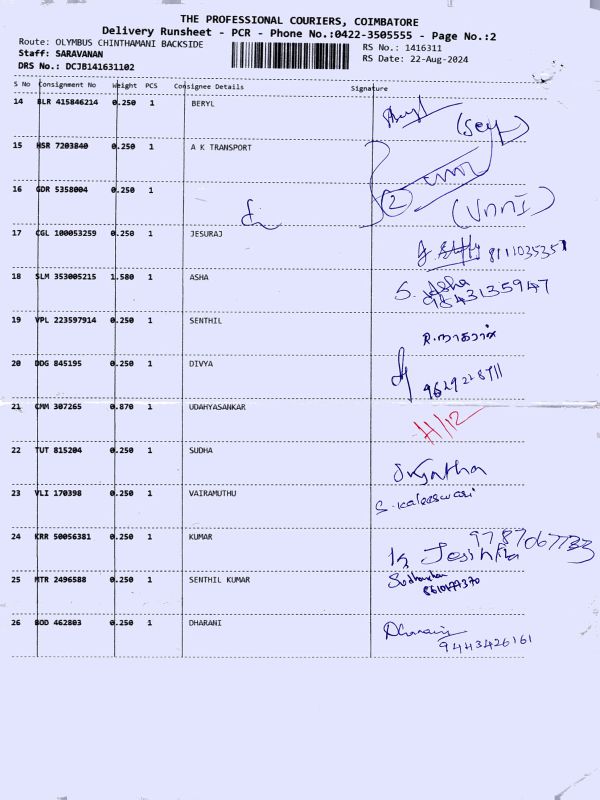 THE PROFESSIONAL COURIERS, COIMBATORE
Delivery Runsheet - PCR - Phone No.:0422-3505555 - Page No.:2
Route: OLYMBUS CHINTHAMANI BACKSIDE
Staff: SARAVANAN
DRS No.: DCJB141631102
RS No.: 1416311
RS Date: 22-Aug-2024
S No Consignment No Weight PCS Consignee Details Signature
14 BLR 415846214 0.250 1 BERYL
(Sey)
15 HSR 7203840 0.250 1 A K TRANSPORT
16 GDR 5358004 0.250 1
2
(UNNI)
17 CGL 100053259 0.250 1 JESURAJ
8111035351
18 SLM 353005215 1.580 1 ASHA S. Asha
9843135947
19 VPL 223597914 0.250 1 SENTHIL
20 DDG 845195 0.250 1 DIVYA
9629228711
21 CMM 307265 0.870 1 UDAHYASANKAR
22 TUT 815204 0.250 1 SUDHA
23 VLI 170398 0.250 1 VAIRAMUTHU S. Kaleeswari
24 KRR 50056381 0.250 1 KUMAR 9787067733
25 MTR 2496588 0.250 1 SENTHIL KUMAR
26 BOD 462803 0.250 1 DHARANI Dharani
9443426161